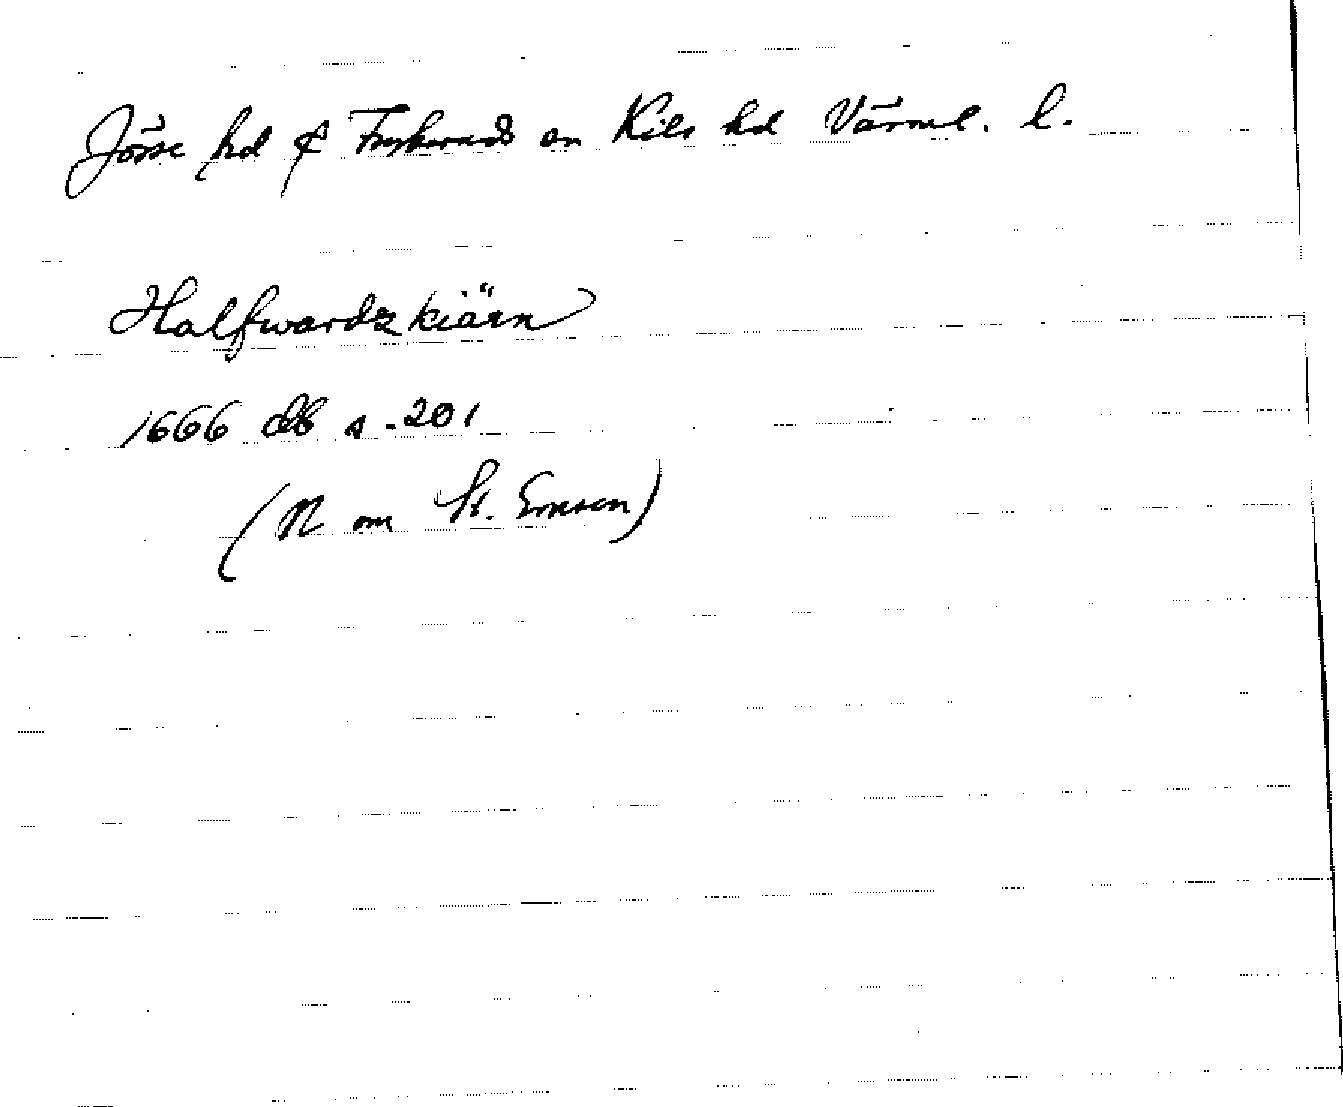 Jösse hd & Fryksand on Kils hd Värml. l.
Halfwardzkiärn
1666 db s. 201
(N om St. Emsen)